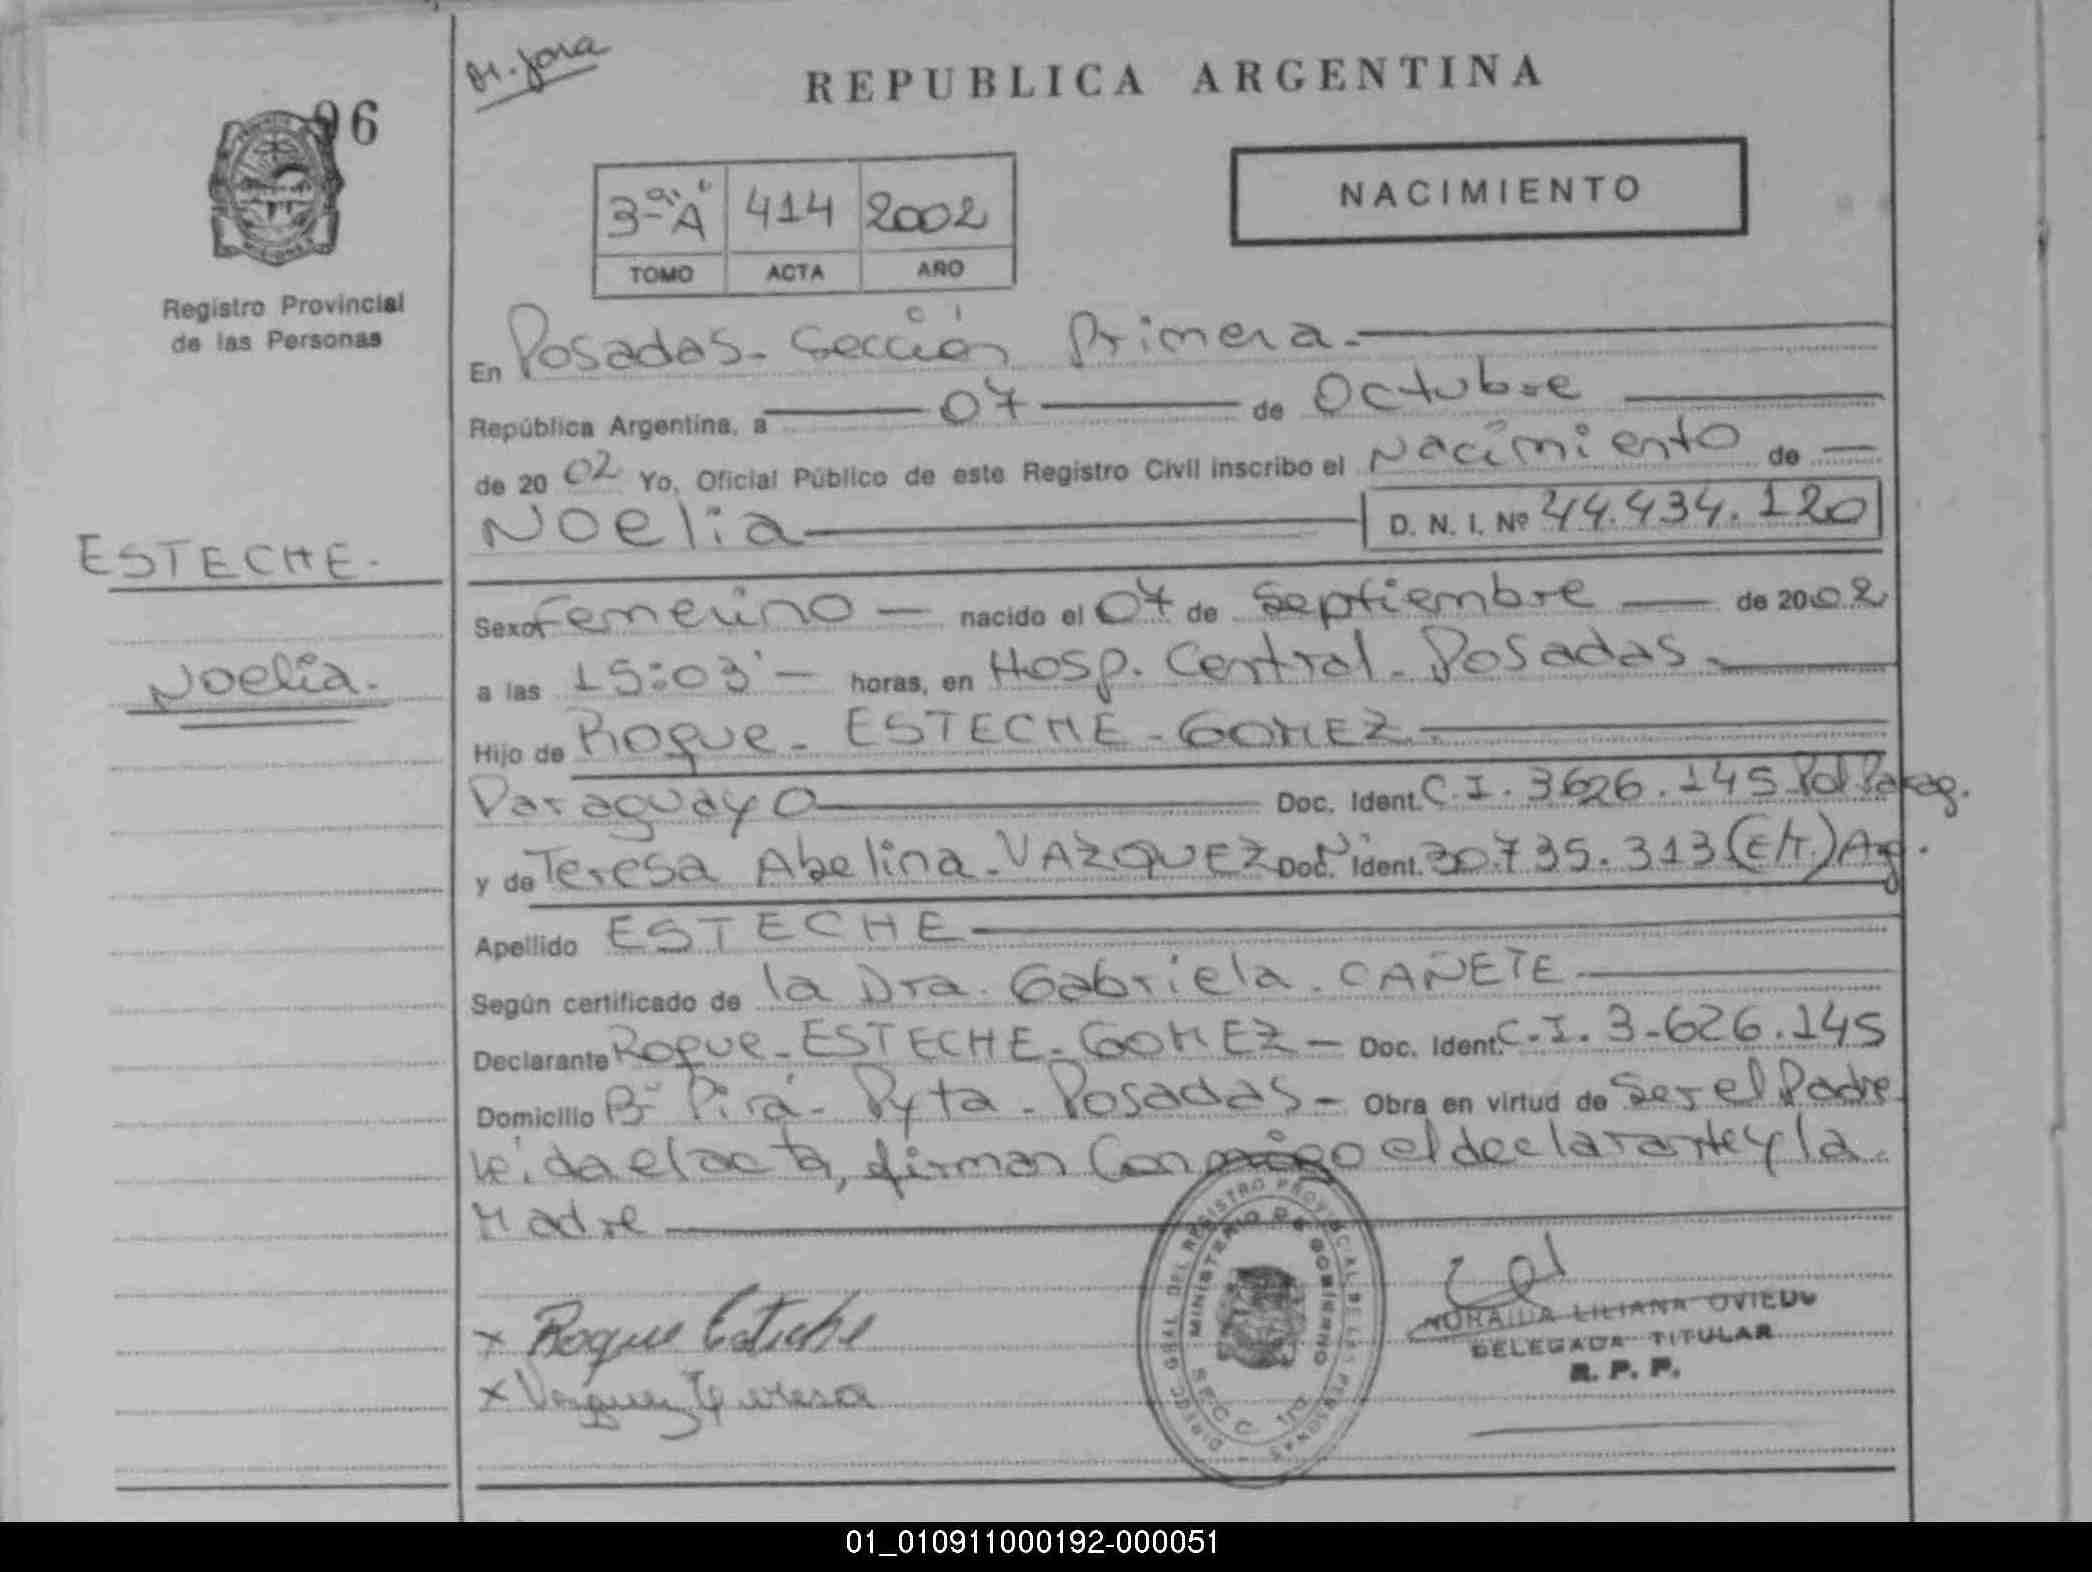 M. Jora
96
REPUBLICA ARGENTINA
NACIMIENTO
3-"A" 414 2002
TOMO ACTA AÑO
Registro Provincial
de las Personas
En Posadas - Sección Primera.-
República Argentina, a 07 de Octubre
de 2002 Yo, Oficial Público de este Registro Civil inscribo el Nacimiento de
Noelia D. N. I. Nº 44.434.120
ESTECHE.
Noelia.
Sexo Femenino - nacido el 07 de Septiembre de 2002
a las 15:03' - horas, en Hosp. Central - Posadas -
Hijo de Roque - ESTECHE - GOMEZ -
Paraguayo Doc. Ident. C.I. 3626.145 Pol Parag.
y de Teresa Abelina - VAZQUEZ Doc. Ident. 30.735.313 (E/T.) Arg.
Apellido ESTECHE
Según certificado de la Dra. Gabriela - CAÑETE
Declarante Roque - ESTECHE - GOMEZ - Doc. Ident. C.I. 3-626.145
Domicilio Bº Pirá - Pyta - Posadas - Obra en virtud de Ser el Padre
leída el acta, firman Conmigo el declarante y la
Madre
x Roque Esteche
x Vazquez Teresa
DIREC. GRAL. DEL REGISTRO PROVINCIAL DE LAS PERSONAS
MINISTERIO DE GOBIERNO
SECC. 1ra.
NORAIDA LILIANA OVIEDO
DELEGADA TITULAR
R. P. P.
01_010911000192-000051